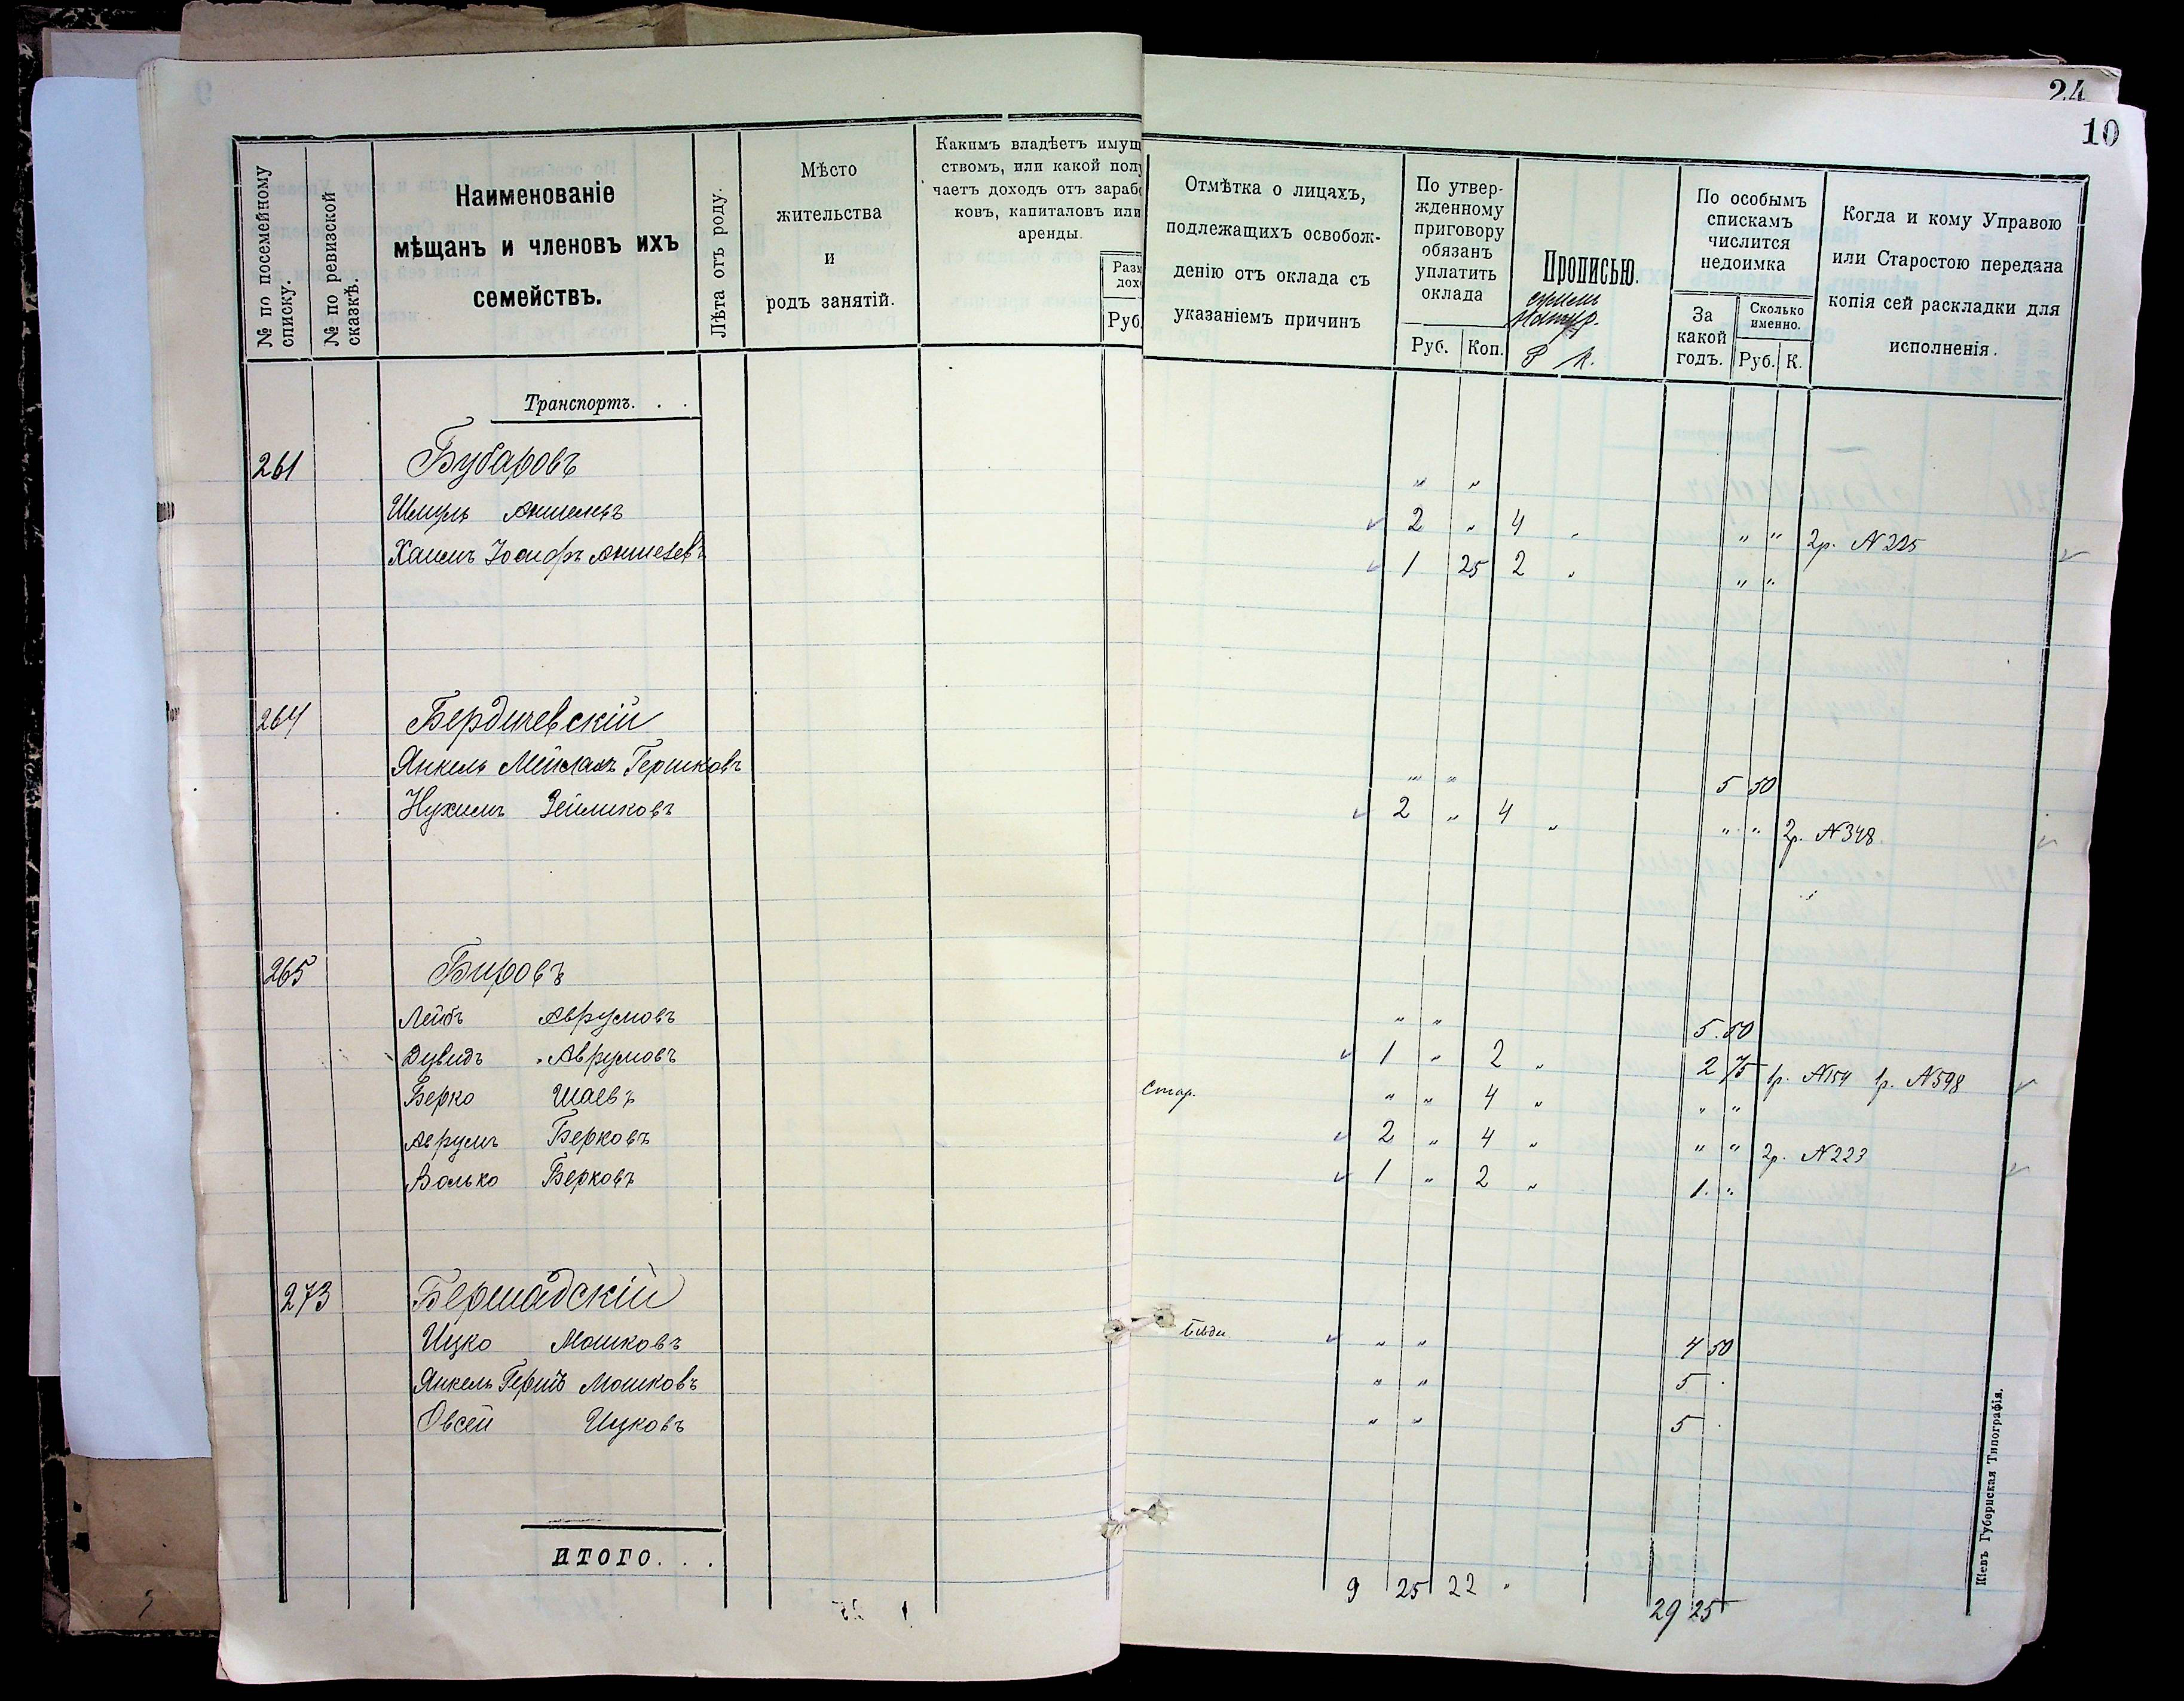 24
10
№ по посемейному списку.
№ по ревизской сказкѣ.
Наименованіе
мѣщанъ и членовъ ихъ
семействъ.
Лѣта отъ роду.
Мѣсто
жительства
и
родъ занятій.
Какимъ владѣетъ имущ
ствомъ, или какой пол
чаетъ доходъ отъ зараб
ковъ, капиталовъ или
аренды.
Разм
дохо
Руб.
Отмѣтка о лицахъ,
подлежащихъ освобож-
денію отъ оклада съ
указаніемъ причинъ
По утвер-
жденному
приговору
обязанъ
уплатить
оклада
Руб. Коп.
Прописью.
Р К.
По особымъ
спискамъ
числится
недоимка
За
какой
годъ.
Сколько
именно.
Руб. К.
Когда и кому Управою
или Старостою передана
копія сей раскладки для
исполненія.
Транспортъ. . .
261 Бубаровъ " "
Шмуль Аншелевъ 2 " 4 " " " 2р. № 225
Хаимъ Іосифъ Аншелевъ 1 25 2 " " "
264 Бердичевскій
Янкель Мейлахъ Гершковъ " " 5 50
Нухимъ Зейликовъ 2 " 4 " " " 2р. № 348.
265 Бировъ
Лейбъ Аврумовъ " " 5.50
Дувидъ Аврумовъ 1 " 2 " 2 75 1р. №154 1р. №598
Берко Шаевъ Стар. " " 4 " " "
Аврумъ Берковъ 2 " 4 " " " 2р. № 223
Волько Берковъ 1 " 2 " 1. "
273 Бершадскій
Ицко Мошковъ " " 4 50
Янкель Гершъ Мошковъ " " 5 .
Овсей Ицковъ " " 5 .
ИТОГО. . .
9 25 22 " 29 25
Кіевъ Губернская Типографія.